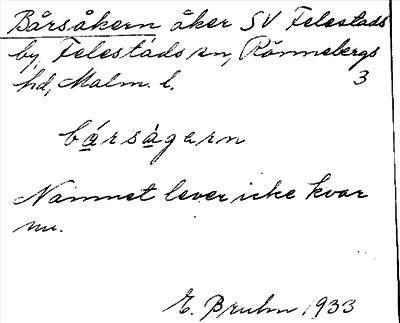 Bårsåkern åker SV Felestads
by, Felestads sn, Rönnebergs
hd, Malm. l. 3
bársàgarn
Namnet lever icke kvar
nu.
E. Bruhn 1933